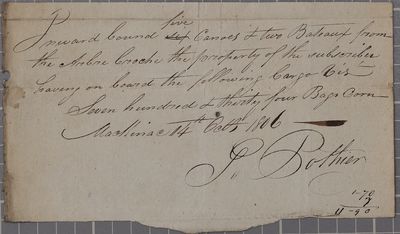 five
Inward bound Canoes & two Bateaux from
the Arbre Croche the porperty of the subscriber
having on board the following Cargo Viz
Seven hundred & thirty four Bags Corn
Mackinac 14th Octr 1806
P. Pothier
1-70
7
11-90